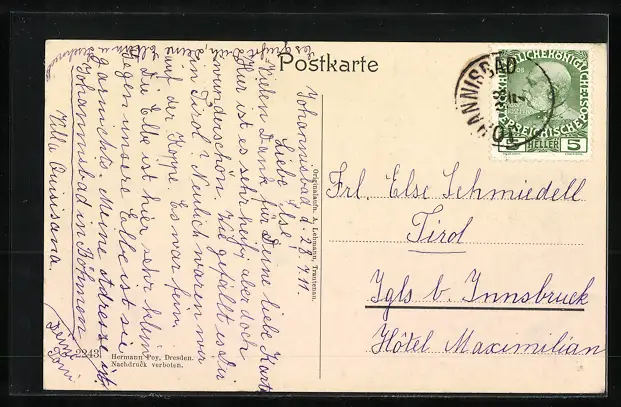 Postkarte
JOHANNISBAD
HELLER
5
Johannisbad d. 28.7.11.
Liebe Else!
Vielen Dank für Deine liebe Karte
Hier ist es sehr hübsch, aber doch
wunderschön. Wie gefällt es Dir
in Tirol? Neulich waren wir
auf der Koppe. Es war fein.
Die Elbe ist hier sehr klein
gegen unsere Elbe ist sie
garnichts. Meine Adresse ist:
Johannisbad in Böhmen
Villa Quisisana.
Frl. Else Schmiedell
Tirol
Igls b. Innsbruck
Hôtel Maximilian
Originalaufn. A. Lehmann, Trautenau.
2243
Hermann Poy, Dresden.
Nachdruck verboten.